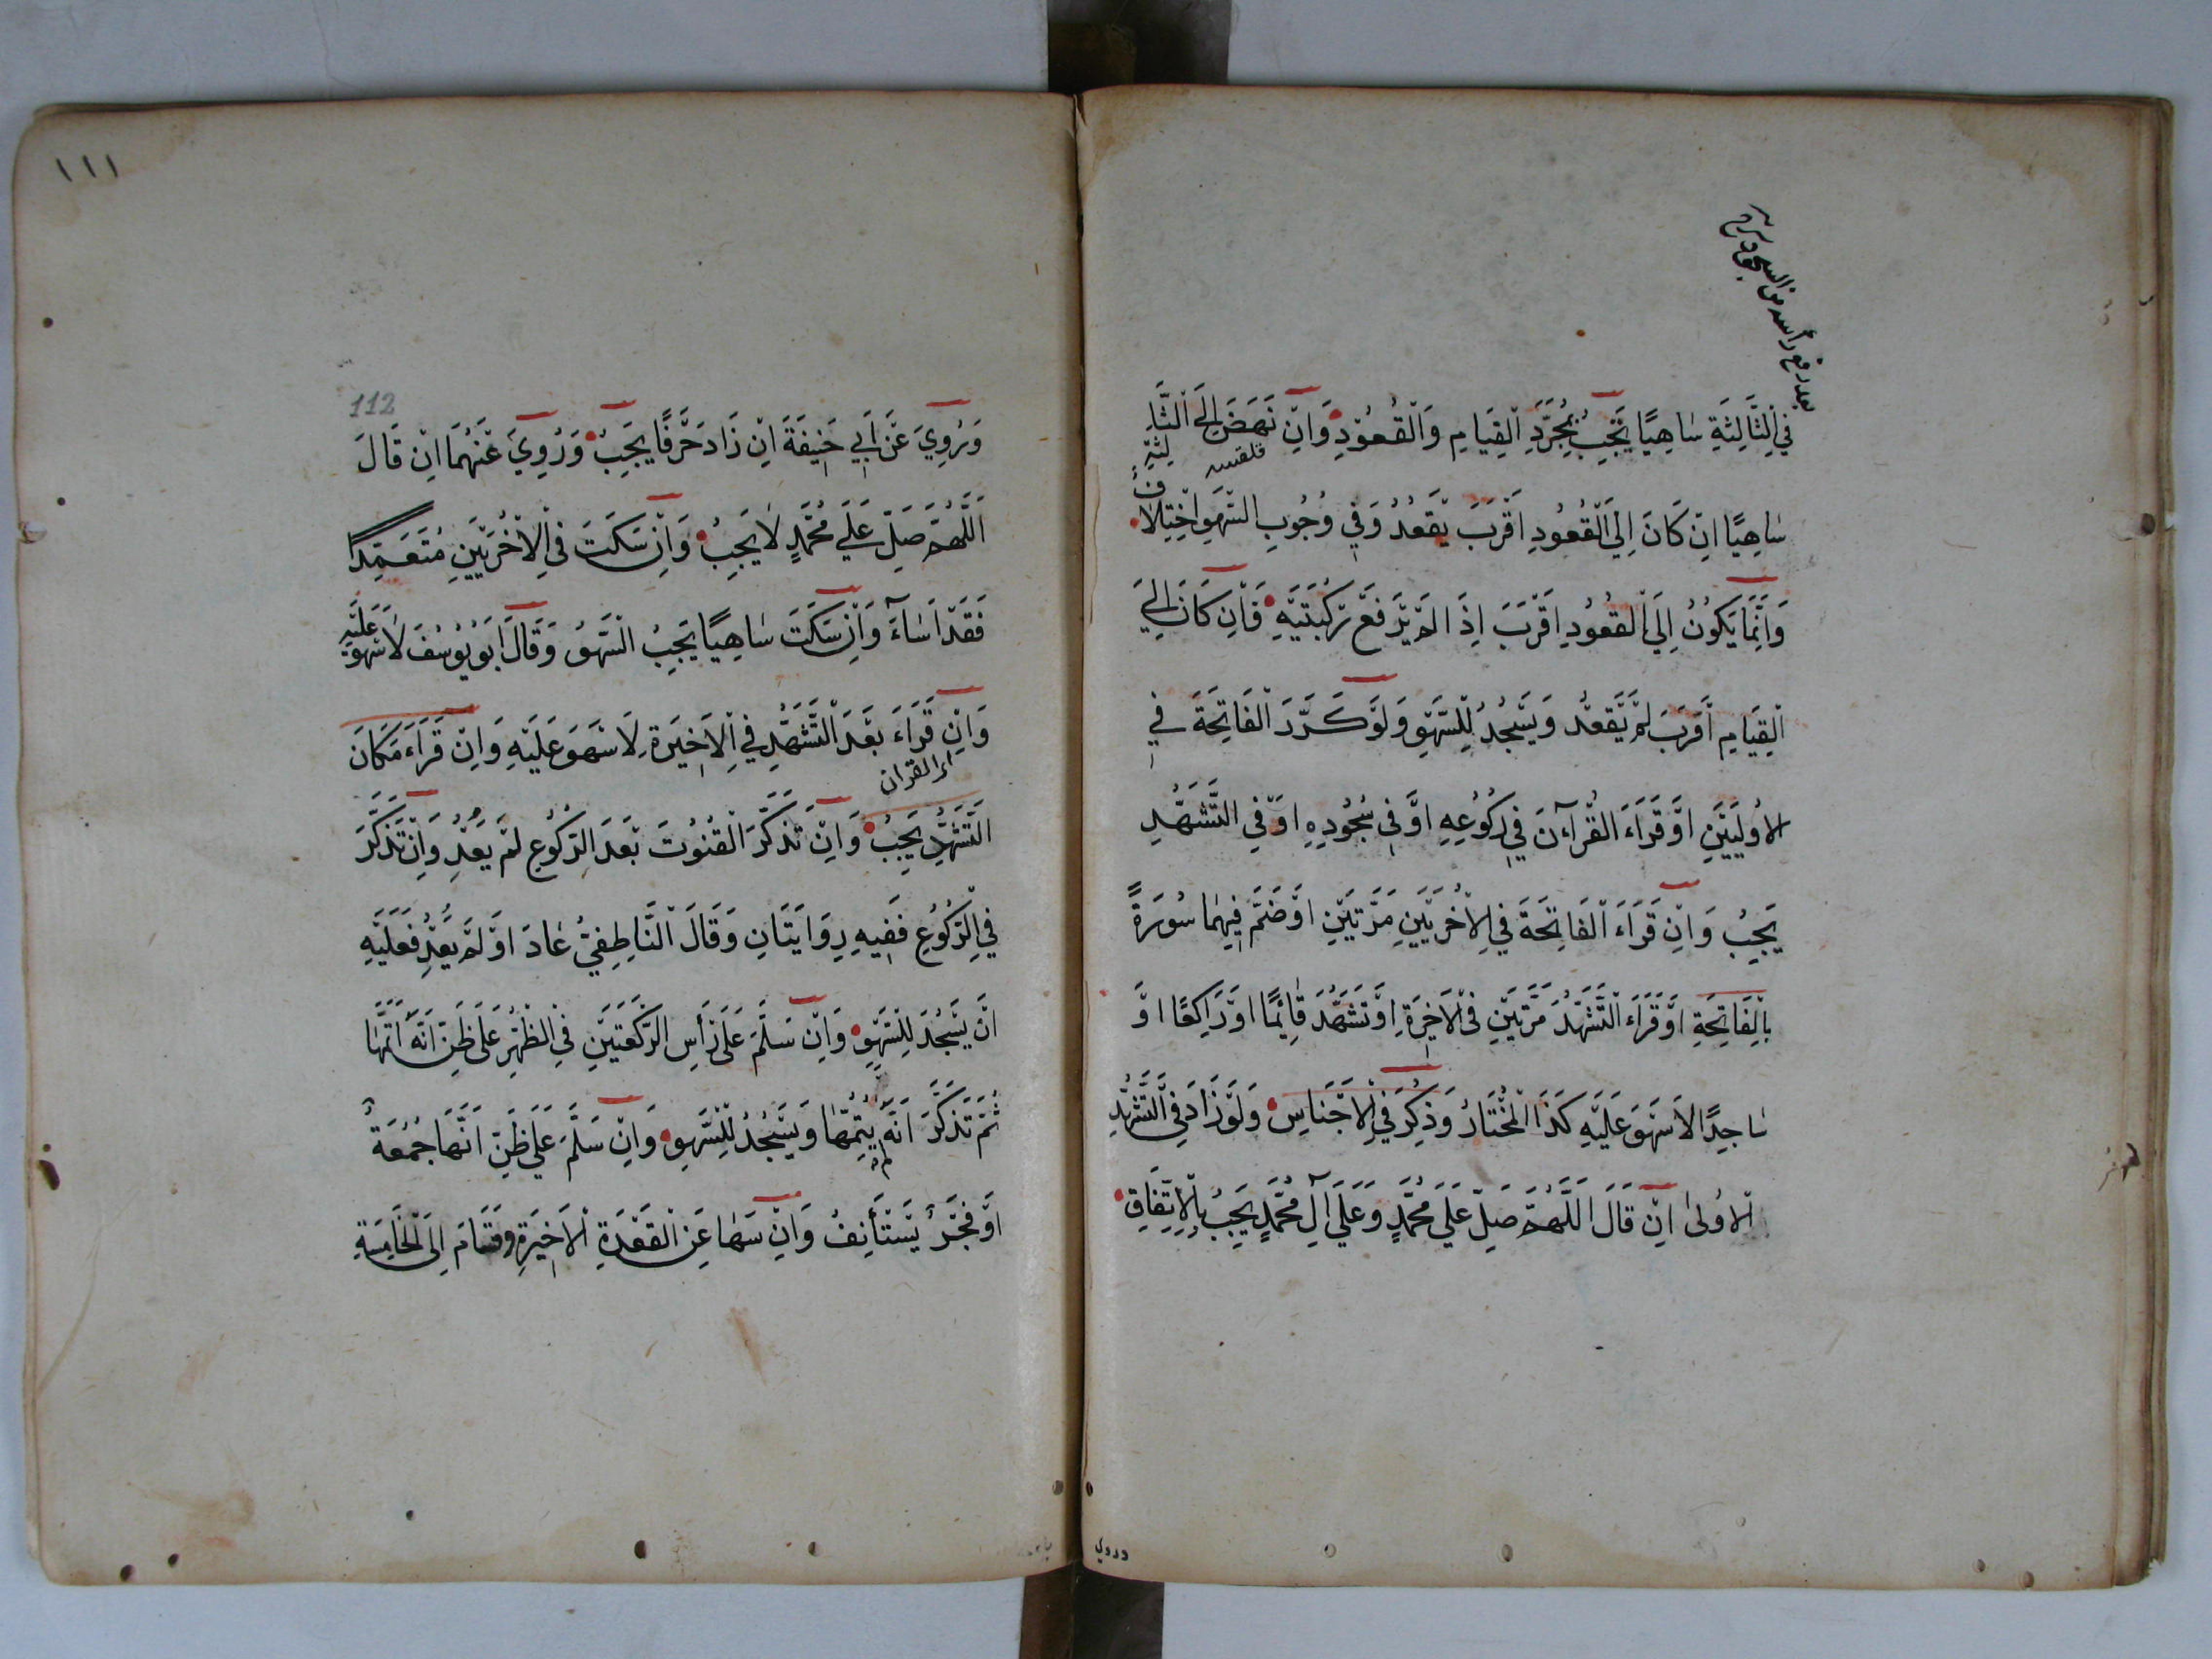 بعد رفع رأسه من السجود
فِي الثَّالِثَةِ سَاهِيًا يَجِبُ بِمُجَرَّدِ الْقِيَامِ وَالْقُعُوْدِ وَاِنْ نَهَضَ اِلَى الثَّا
لِثَةِ
سَاهِيًا اِنْ كَانَ اِلَى الْقُعُودِ اَقْرَبَ يَقْعُدُ وَفِي وُجُوبِ السَّهْوِ اخْتِلَافٌ
وَاِنَّمَا يَكُونُ اِلَى الْقُعُودِ اَقْرَبَ اِذَا لَمْ يَرْفَعْ رُكْبَتَيْهِ فَاِنْ كَانَ اِلَى
الْقِيَامِ اَقْرَبَ لَمْ يَقْعُدْ وَيَسْجُدُ لِلسَّهْوِ وَلَوْ كَرَّرَ الْفَاتِحَةَ فِي
الاُولَيَيْنِ اَوْ قَرَاءَ الْقُرْآنَ فِي رُكُوْعِهِ اَوْ فِي سُجُودِهِ اَوْ فِي التَّشَهُّدِ
يَجِبُ وَاِنْ قَرَاءَ الْفَاتِحَةَ فِي الْاُخْرَيَيْنِ مَرَّتَيْنِ اَوْ ضَمَّ فِيهِمَا سُورَةً
بِالْفَاتِحَةِ اَوْ قَرَاءَ التَّشَهُّدَ مَرَّتَيْنِ فِي الْاَخِيرَةِ اَوْ تَشَهَّدَ قَائِمًا اَوْ رَاكِعًا اَوْ
سَاجِدًا لَا سَهْوَ عَلَيْهِ كَذَا الْمُخْتَارُ وَذُكِرَ فِي الْاَجْنَاسِ وَلَوْ زَادَ فِي التَّشَهُّدِ
الْاُولَى اِنْ قَالَ اَللّٰهُمَّ صَلِّ عَلَى مُحَمَّدٍ وَعَلَى آلِ مُحَمَّدٍ يَجِبُ بِالْاِتِّفَاقِ
وروي
١١١
112
وَرُوِيَ عَنْ اَبِي حَنِيفَةَ اِنْ زَادَ حَرْفًا يَجِبُ وَرُوِيَ عَنْهُمَا اِنْ قَالَ
اَللّٰهُمَّ صَلِّ عَلَى مُحَمَّدٍ لَا يَجِبُ وَاِنْ سَكَتَ فِي الْاُخْرَيَيْنِ مُتَعَمِّدًا
فَقَدْ اَسَاءَ وَاِنْ سَكَتَ سَاهِيًا يَجِبُ السَّهْوُ وَقَالَ اَبُو يُوْسُفَ لَا سَهْوَ عَلَيْهِ
وَاِنْ قَرَاءَ بَعْدَ التَّشَهُّدِ فِي الْاَخِيرَةِ لَا سَهْوَ عَلَيْهِ وَاِنْ قَرَاءَ مَكَانَ
القران
التَّشَهُّدِ يَجِبُ وَاِنْ تَذَكَّرَ الْقُنُوْتَ بَعْدَ الرُّكُوْعِ لَمْ يَعُدْ وَاِنْ تَذَكَّرَ
فِي الرُّكُوْعِ فَفِيهِ رِوَايَتَانِ وَقَالَ النَّاطِفِيُّ عَادَ اَوْ لَمْ يَعُدْ فَعَلَيْهِ
اَنْ يَسْجُدَ لِلسَّهْوِ وَاِنْ سَلَّمَ عَلَى رَأْسِ الرَّكْعَتَيْنِ فِي الظُّهْرِ عَلَى ظَنِّ اَنَّهُ اَتَمَّهَا
ثُمَّ تَذَكَّرَ اَنَّهُ يُتِمُّهَا وَيَسْجُدُ لِلسَّهْوِ وَاِنْ سَلَّمَ عَلَى ظَنِّ اَنَّهَا جُمُعَةٌ
اَوْ فَجْرٌ يَسْتَأْنِفُ وَاِنْ سَهَا عَنِ الْقَعْدَةِ الْاَخِيرَةِ وَقَامَ اِلَى الْخَامِسَةِ